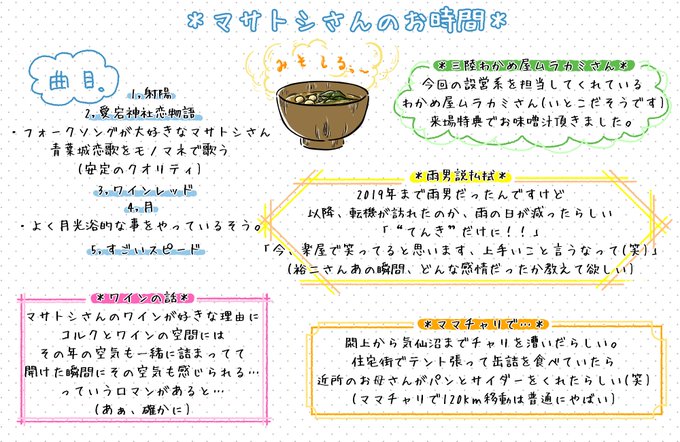 *マサトシさんのお時間*
曲目。
1,射陽
2,愛宕神社恋物語
・フォークソングが大好きなマサトシさん
青葉城恋歌をモノマネで歌う
(安定のクオリティ)
3,ワインレッド
4,月
・よく月光浴的な事をやっているそう。
5,すごいスピード
みそしる、、~
*三陸わかめ屋ムラカミさん*
今回の設営系を担当してくれている
わかめ屋ムラカミさん(いとこだそうです)
来場特典でお味噌汁頂きました。
*雨男説払拭*
2019年まで雨男だったんですけど
以降、転機が訪れたのか、雨の日が減ったらしい
「“てんき”だけに!!」
「今、楽屋で笑ってると思います、上手いこと言うなって(笑)」
(裕二さんあの瞬間、どんな感情だったか教えて欲しい)
*ワインの話*
マサトシさんのワインが好きな理由に
コルクとワインの空間には
その年の空気も一緒に詰まってて
開けた瞬間にその空気も感じられる…
っていうロマンがあると…
(あぁ、確かに)
*ママチャリで…*
閖上から気仙沼までチャリを漕いだらしい。
住宅街でテント張って缶詰を食べていたら
近所のお母さんがパンとサイダーをくれたらしい(笑)
(ママチャリで120km移動は普通にやばい)